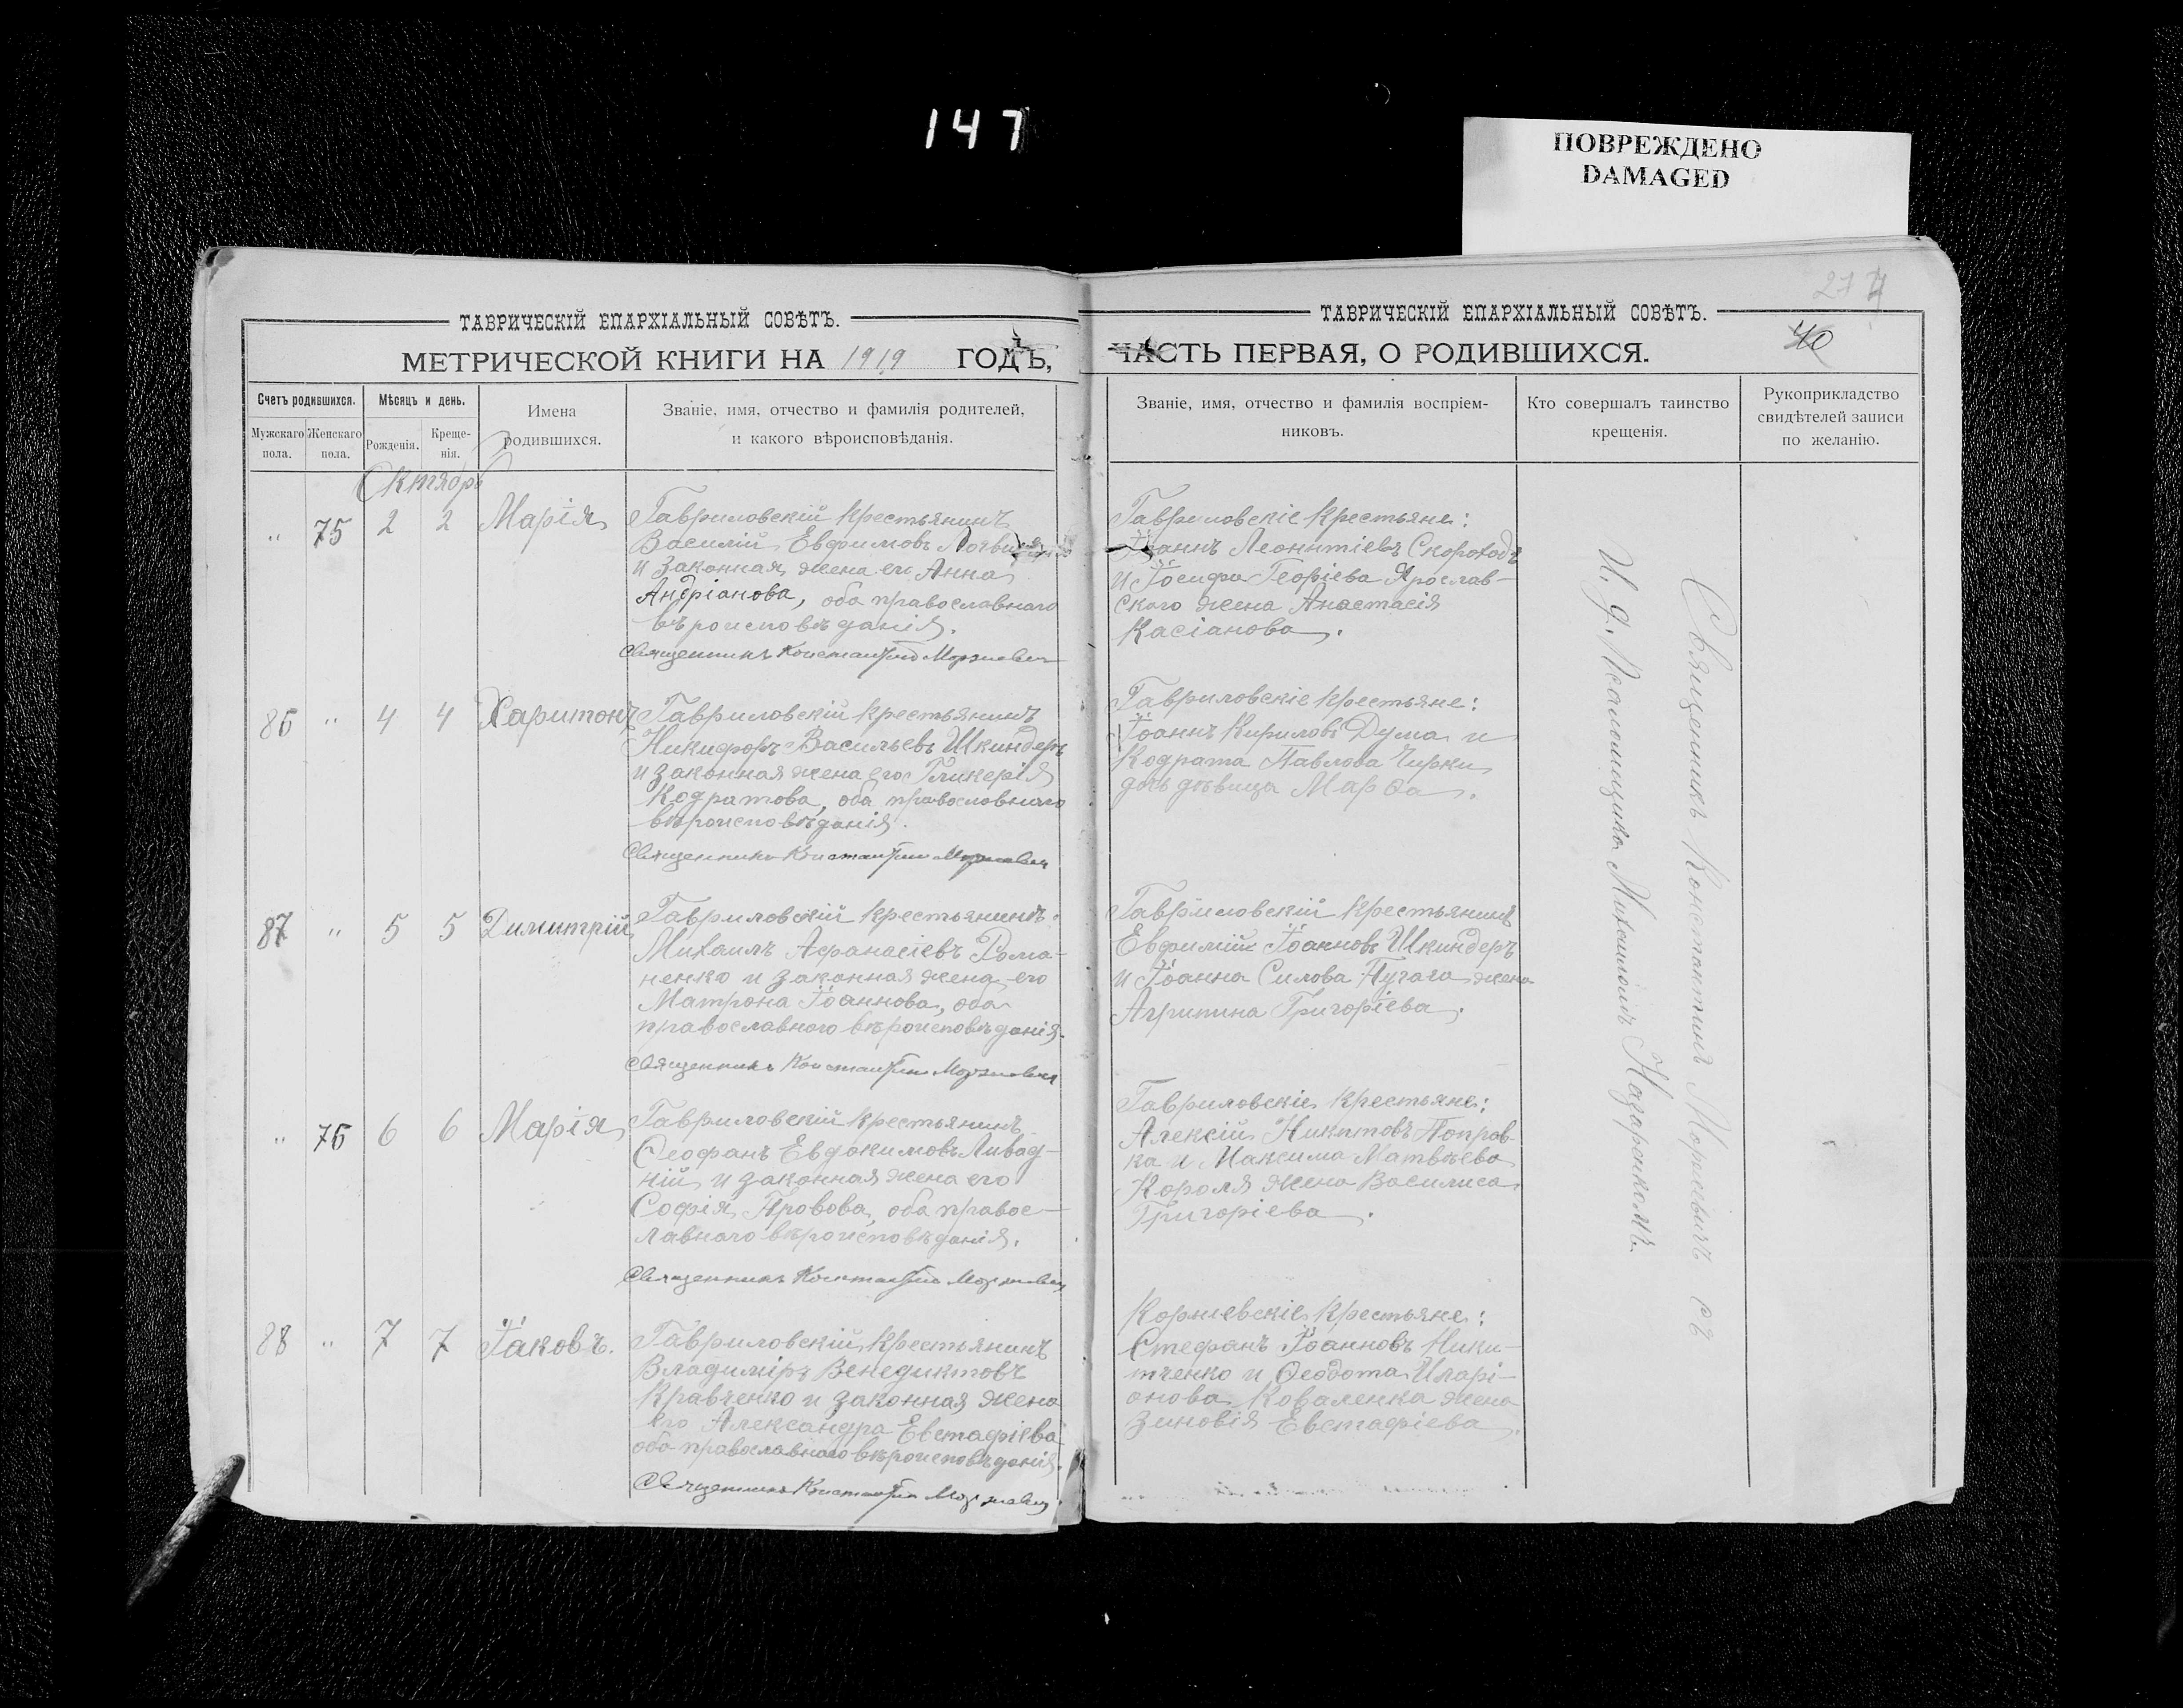 147
ПОВРЕЖДЕНО
DAMAGED
ТАВРИЧЕСКІЙ ЕПАРХІАЛЬНЫЙ СОВѢТЪ.
МЕТРИЧЕСКОЙ КНИГИ НА 1919 ГОДЪ,
Счетъ родившихся.
Мужскаго пола.
Женскаго пола.
Мѣсяцъ и день.
Рожденія.
Креще-
нія.
Имена
родившихся.
Званіе, имя, отчество и фамилія родителей,
и какого вѣроисповѣданія.
Октябрь
" 75 2 2 Марія
Гавриловскій крестьянинъ
Василій Евфимовъ
и законная жена его Анна
Андріанова, оба православнаго
вѣроисповѣданія.
Священникъ Константинъ Моржевич
86 " 4 4 Харитонъ
Гавриловскій крестьянинъ
Никифоръ Васильевъ Шкиндеръ
и законная жена его Гликерія
Кодратова, оба православнаго
вѣроисповѣданія.
Священникъ Константинъ Моржевич
87 " 5 5 Димитрій
Гавриловскій крестьянинъ
Михаилъ Афанасіевъ Рома-
ненко и законная жена его
Матрона Іоаннова, оба
православнаго вѣроисповѣданія.
Священникъ Константинъ Моржевич
" 76 6 6 Марія
Гавриловскій крестьянинъ
Ѳеофанъ Евдокимовъ Ливад-
ній и законная жена его
Софія Провова, оба правос-
лавнаго вѣроисповѣданія.
Священникъ Константинъ Моржевич
88 " 7 7 Іаковъ.
Гавриловскій крестьянинъ
Владиміръ Венедиктовъ
Кравченко и законная жена
его Александра Евстафіева
оба православнаго вѣроисповѣданія.
Священникъ Константинъ Моржевич
27
40
ТАВРИЧЕСКІЙ ЕПАРХІАЛЬНЫЙ СОВѢТЪ.
ЧАСТЬ ПЕРВАЯ, О РОДИВШИХСЯ.
Званіе, имя, отчество и фамилія воспріем-
никовъ.
Кто совершалъ таинство
крещенія.
Рукоприкладство
свидѣтелей записи
по желанію.
Гавриловскіе крестьяне:
Іоаннъ Леонтіевъ Скороходъ
и Іосифа Георгіева Ярослав-
скаго жена Анастасія
Касіанова.
Гавриловскіе крестьяне:
Іоаннъ Кириловъ Дума и
Кодрата Павлова Чирки
дочь дѣвица Марѳа.
Гавриловскій крестьянинъ
Евфимій Іоанновъ Шкиндеръ
и Іоанна Силова Пугача жена
Агрипина Григоріева.
Гавриловскіе крестьяне:
Алексій Никитовъ Поправ-
ка и Максима Матвѣева
Короля жена Василиса
Григоріева.
Корнеевскіе крестьяне:
Стефанъ Іоанновъ Ники-
тченко и Ѳеодота Иларі-
онова Коваленка жена
Зиновія Евстафіева.
Священникъ Константинъ Моржевичъ съ
И. д. Псаломщика Михаиломъ Назаренкомъ.